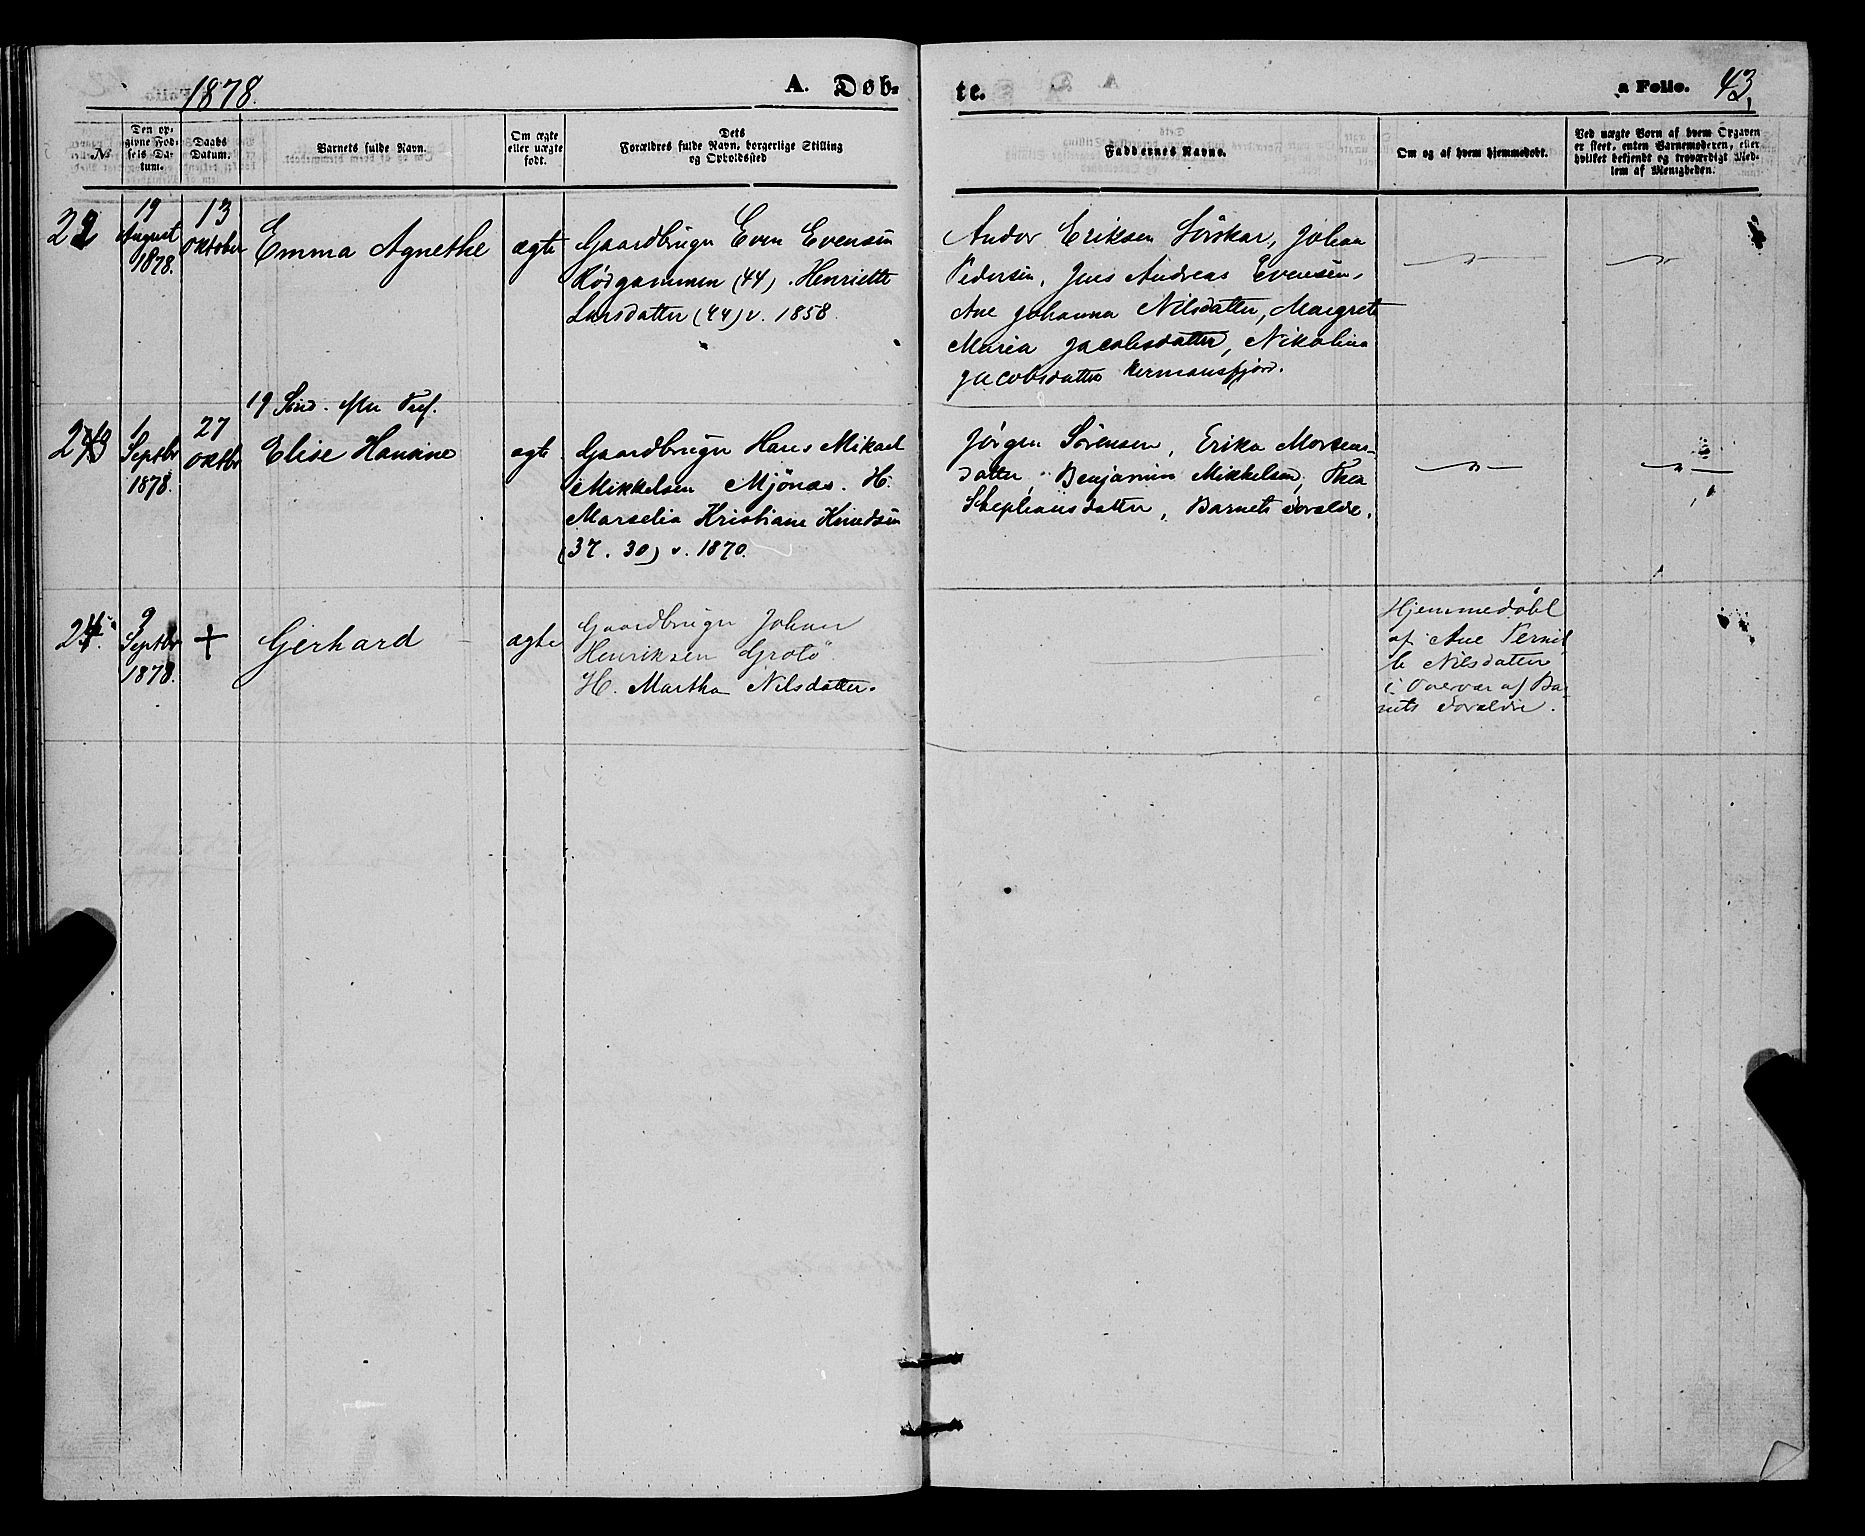 1878.
A. Døb-
te.
a Folio. 43,
№
Den op-
givne Fød-
sels Da-
tum.
Daabs
Datum.
Barnets fulde Navn.
Om ægte
eller uægte
født.
Dets
Forældres fulde Navn, borgerlige Stilling
og Opholdssted
Faddernes Navne.
Om og af hvem hjemmedøbt.
Ved uægte Børn af hvem Opgaven
er skeet, enten Barnemoderen, eller
hvilket bekjendt og troværdigt Med-
lem af Menigheden.
22
19
August
1878.
13
Oktober
Emma Agnethe
ægte
Gaardbruger Even Evensen
Rødgammen (44). Henriette
Larsdatter (44) v. 1858.
Andor Eriksen Sörskar, Johan
Pedersen, Jens Andreas Evensen,
Ane Johanna Nilsdatter, Margrete
Maria Jacobsdatter, Nikolina
Jacobsdatter Hermansfjord.
19 Sönd. efter Tref.
23
1
Septbr
1878.
27
Oktbr
Elise Hansine
ægte
Gaardbruger Hans Mikael
Mikkelsen Mjönæs. H.
Marselia Kristiane Knudsen
(37. 30) v. 1870.
Jörgen Sörensen, Erika Mortens-
datter, Benjamin Mikkelsen, Thea
Stephansdatter, Barnets Forældre.
24.
9
Septbr
1878.
+
Gerhard
ægte
Gaardbruger Johan
Henriksen Grotö.
H. Martha Nilsdatter.
Hjemmedöbt
af Ane Pernil
le Nilsdatter
i Overvær af Bar
nets Forældre.